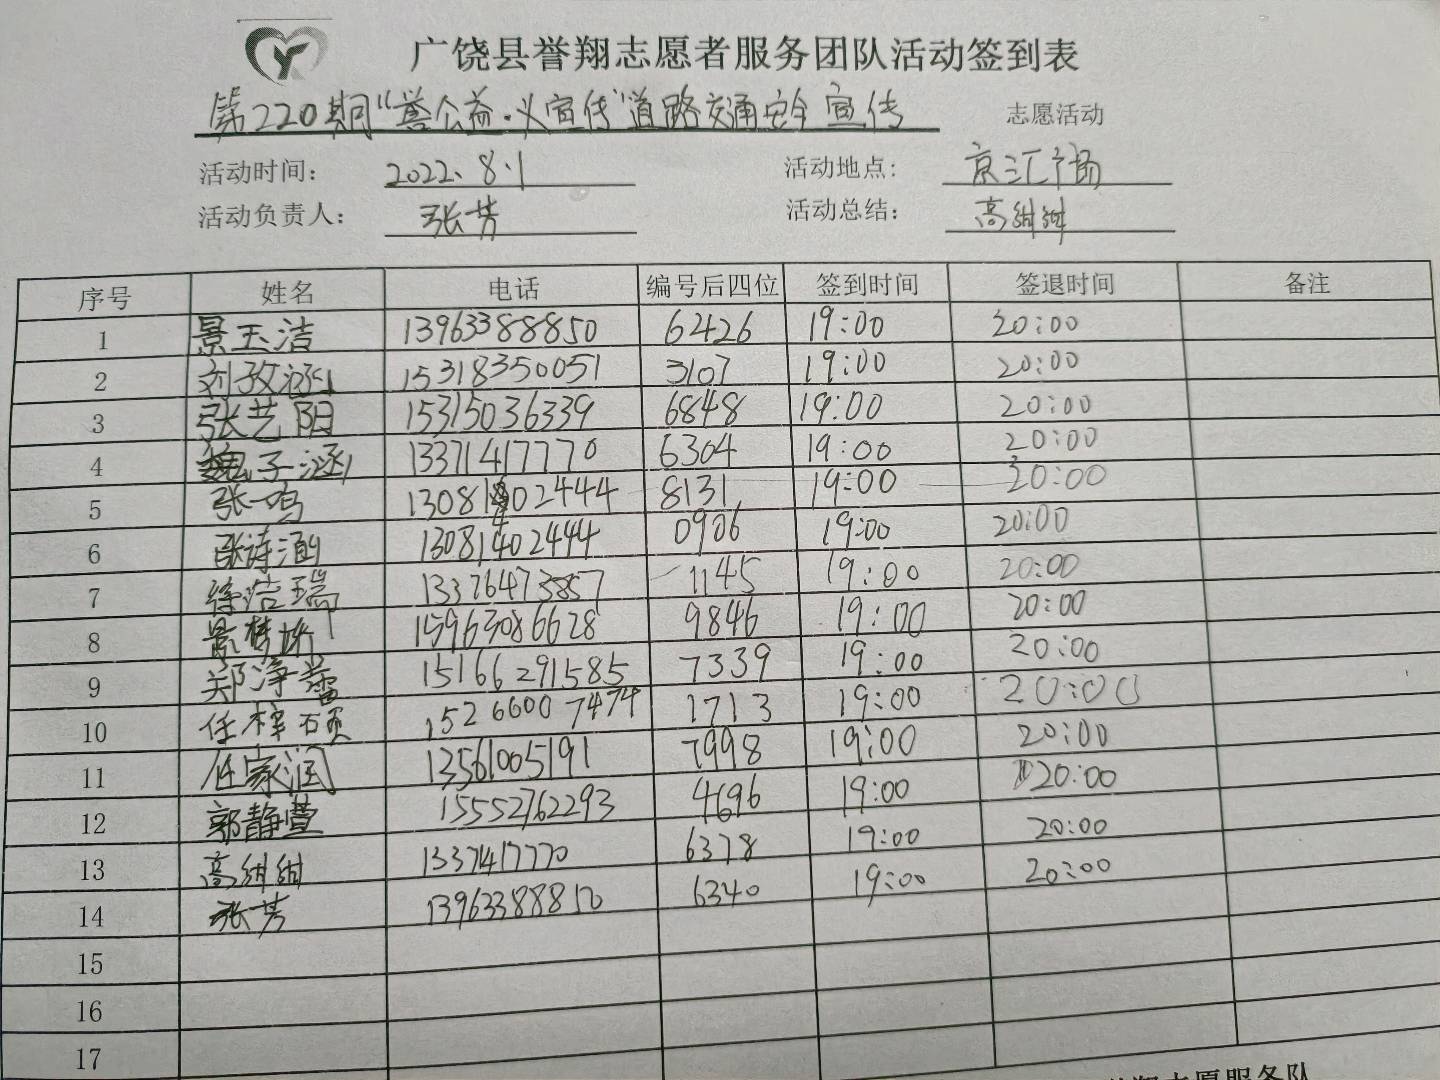 广饶县誉翔志愿者服务团队活动签到表
第220期“誉公益·义宣传”道路交通安全宣传 志愿活动
活动时间： 2022.8.1 活动地点： 京汇广场
活动负责人： 张芳 活动总结： 高甜甜
序号 姓名 电话 编号后四位 签到时间 签退时间 备注
1 景玉洁 13963388850 6426 19:00 20:00
2 刘孜涵 15318350051 3107 19:00 20:00
3 张艺阳 15315036339 6848 19:00 20:00
4 魏子涵 13371417770 6304 19:00 20:00
5 张一鸣 13081402444 8131 19:00 20:00
6 张诗涵 13081402444 0906 19:00 20:00
7 徐浩瑞 13376473857 1145 19:00 20:00
8 景梦圻 15963086628 9846 19:00 20:00
9 郑净蕾 15166291585 7339 19:00 20:00
10 任梓硕 15266007474 1713 19:00 20:00
11 任家润 13561005191 7998 19:00 20:00
12 郭静萱 15552762293 4696 19:00 20:00
13 高甜甜 1337417770 6378 19:00 20:00
14 张芳 13963388850 6340 19:00 20:00
15
16
17
翔志愿服务队